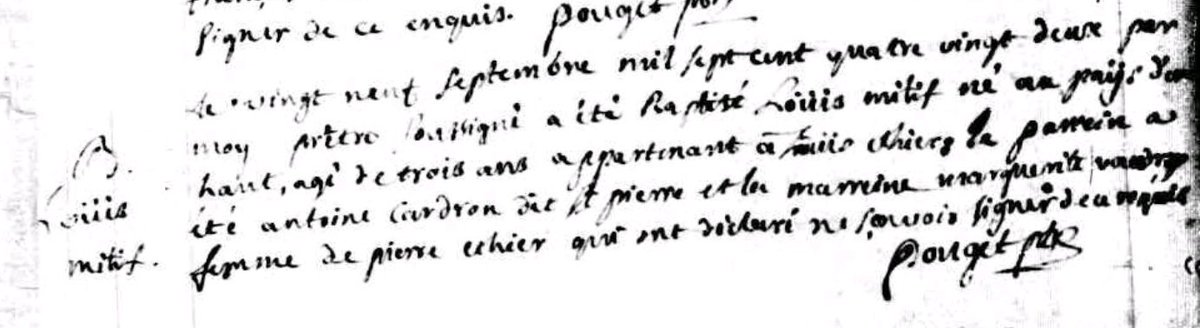 signer de ce enquis. Pouget ptre
Le vingt neuf septembre mil sept cent quatre vingt deux par
moy prêtre soussigné a été Baptisé Loüis mitif né au païs d'en
B. haut, agé de trois ans appartenant à Loüis chiers le parrein a
Loüis été antoine Cardron dit st pierre et la marreine marguerite
mitif. femme de pierre chier qui ont déclaré ne sçavoir signer de ce requis
Pouget ptre